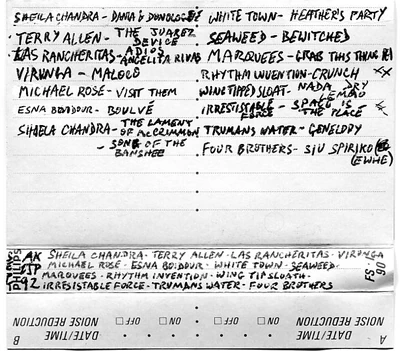 SHEILA CHANDRA -
TERRY ALLEN - THE JUAREZ DEVICE
LAS RANCHERITAS - ADIOS ANGELITA RIVAS
VIRUNGA - MALOCO
MICHAEL ROSE - VISIT THEM
ESNA BOUDOUR - BOULVÉ
SHEILA CHANDRA - THE LAMENT OF McCRIMMON
- SONG OF THE BANSHEE
WHITE TOWN - HEATHER'S PARTY
SEAWEED - BEWITCHED
MARQUEES - GRAB THIS THING
RHYTHM INVENTION - CRUNCH
WING TIPPED SLOAT - NADA DRY
IRRESISTABLE FORCE - SPACE IS THE PLACE
TRUMANS WATER -
FOUR BROTHERS - SIU SPIRIKO
(EWHE)
SHEILA CHANDRA · TERRY ALLEN · LAS RANCHERITAS · VIRUNGA
MICHAEL ROSE · ESNA BOUDOUR · WHITE TOWN · SEAWEED ·
MARQUEES · RHYTHM INVENTION · WING TIP SLOATH ·
IRRESISTABLE FORCE · TRUMANS WATER · FOUR BROTHERS
92
90
A DATE/TIME
NOISE REDUCTION □ ON □ OFF
B DATE/TIME
NOISE REDUCTION □ ON □ OFF